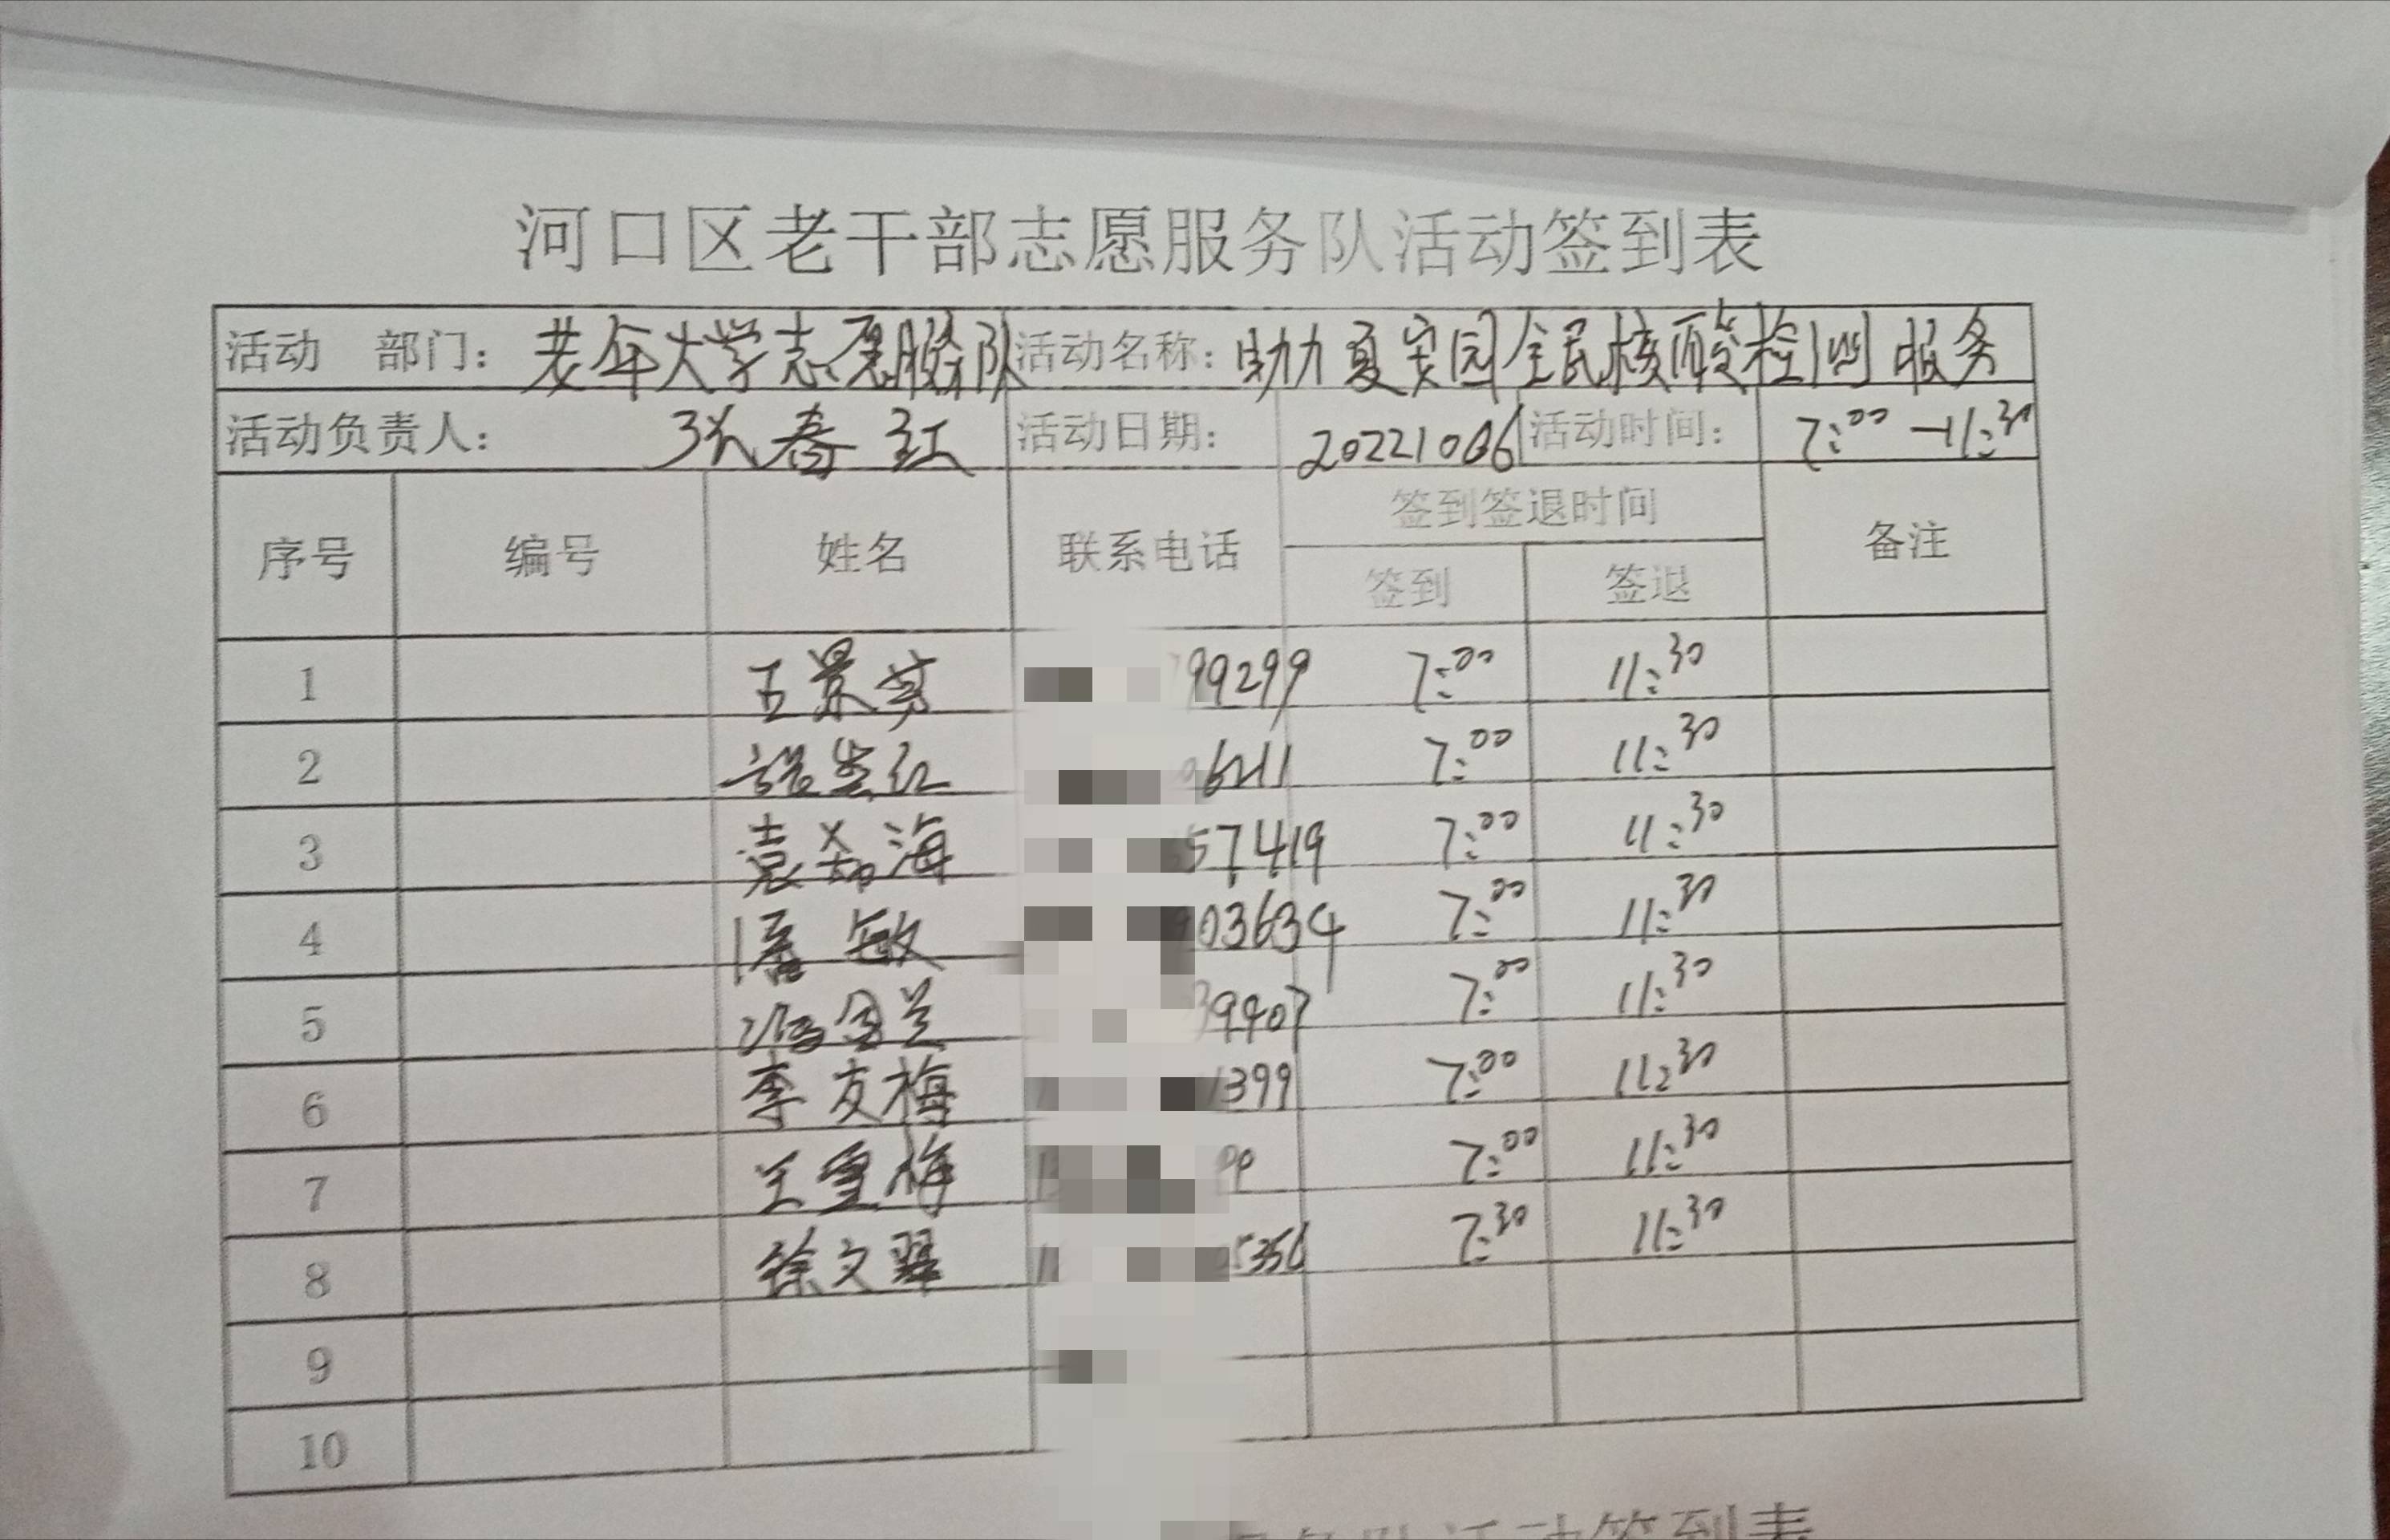 河口区老干部志愿服务队活动签到表
活动 部门: 老年大学志愿服务队 活动名称: 助力夏安园全民核酸检测服务
活动负责人: 张春红 活动日期: 20221006 活动时间: 7:00-11:30
序号 编号 姓名 联系电话 签到签退时间 备注
签到 签退
1 99299 7:00 11:30
2 6211 7:00 11:30
3 袁 海 57419 7:00 11:30
4 潘敏 903634 7:00 11:30
5 冯 兰 39407 7:00 11:30
6 李友梅 1399 7:00 11:30
7 王 梅 99 7:00 11:30
8 徐文翠 5356 7:30 11:30
9
10
队活动签到表